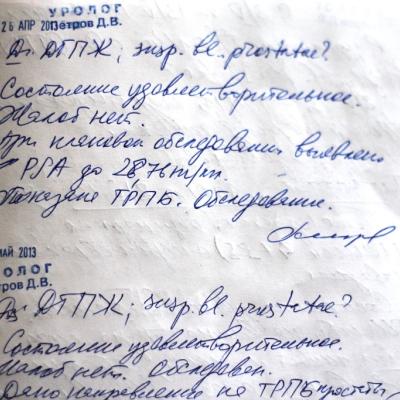 УРОЛОГ
26 АПР 2013 Петров Д.В.
Ds ДТПЖ; susp. bl. prostatae?
Состояние удовлетворительное.
Жалоб нет.
При плановом обследовании выявлено
PSA до 28,76 нг/мл.
Показана ТРПБ. Обследование.
МАЙ 2013
РОЛОГ
тров Д.В.
Ds ДТПЖ; susp. bl. prostatae?
Состояние удовлетворительное.
Жалоб нет. Обследован.
Дано направление на ТРПБ простаты